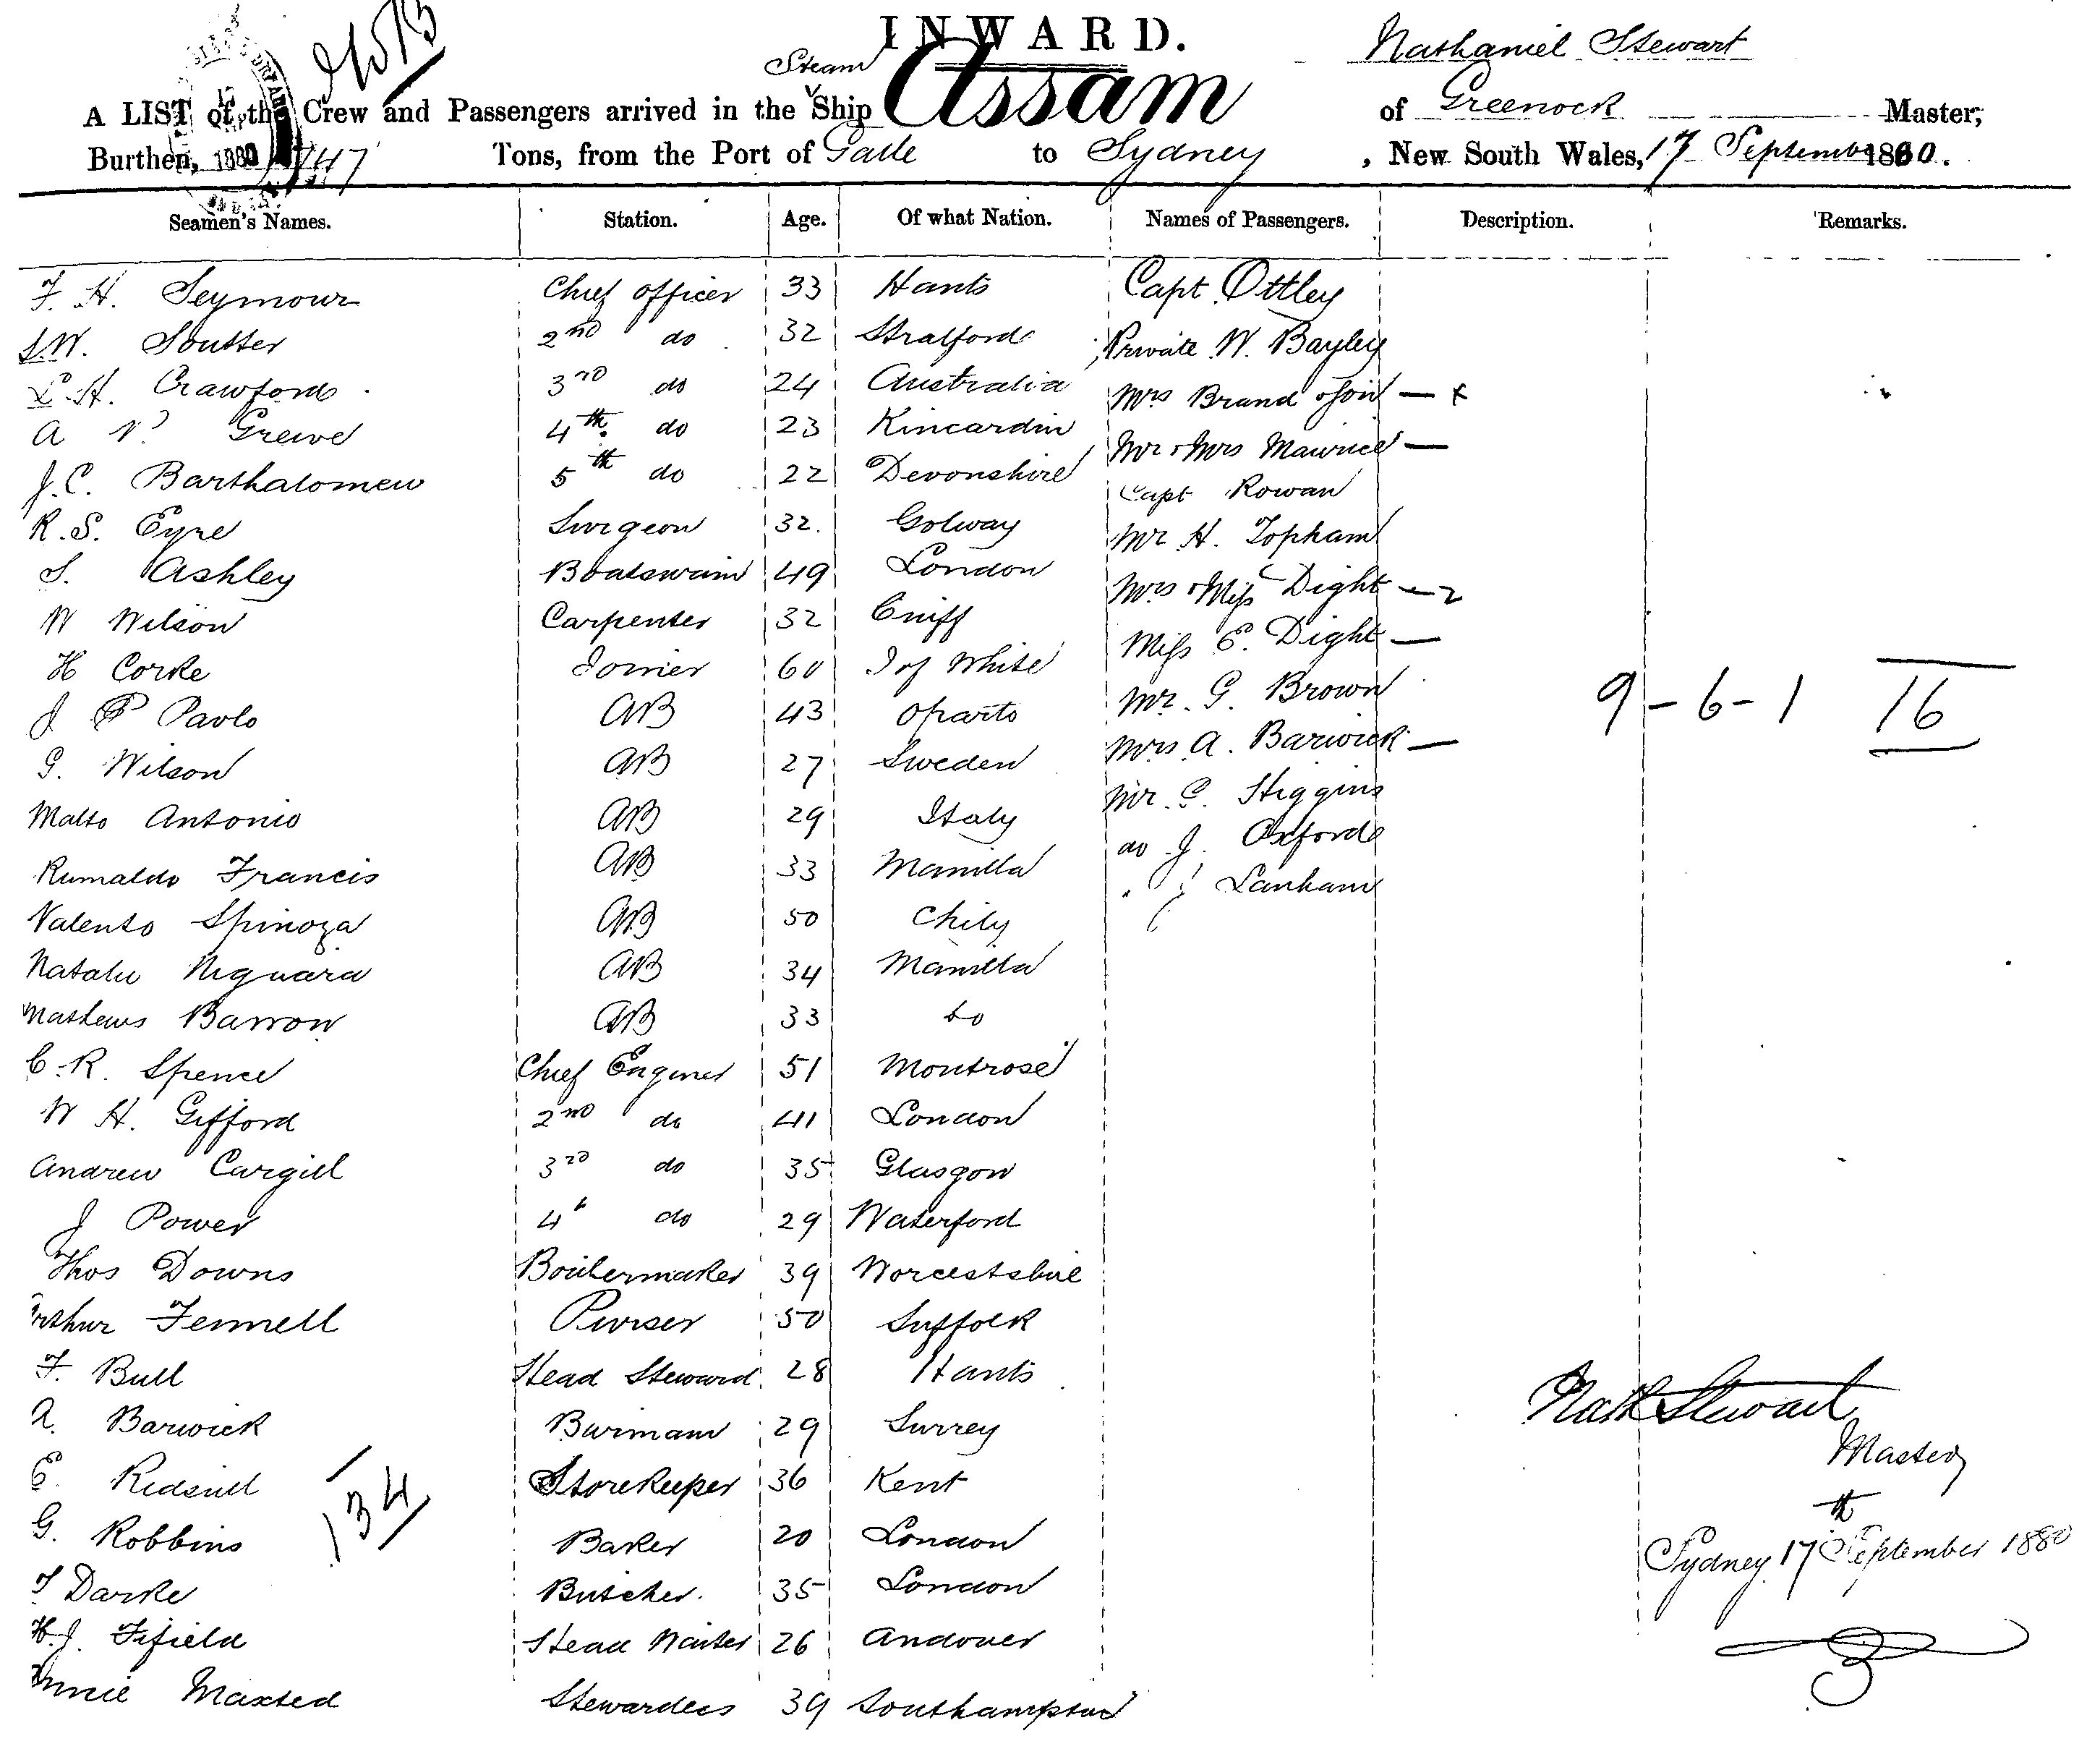 INWARD.
Nathaniel Stewart
Steam
A LIST of the Crew and Passengers arrived in the Ship Assam of Greenock Master,
Burthen, Tons, from the Port of Galle to Sydney, New South Wales, 17 September 1880.
Seamen's Names. Station. Age. Of what Nation. Names of Passengers. Description. Remarks.
F. H. Seymour Chief officer 33 Hants Capt. Ottley
S.W. Soutter 2nd do 32 Stratford Private W. Bayley
H. Crawford 3rd do 24 Australia Mrs Brand & son — x
A Greive 4th do 23 Kincardin Mr & Mrs Maurice —
J.C. Barthalomew 5th do 22 Devonshire Capt Rowan
R.S. Eyre Surgeon 32. Golway Mr H. Topham
S. Ashley Boatswain 49 London Mrs & Miss Dight — 2
W Wilson Carpenter 32 Miss E. Dight —
H Corke Joiner 60 I of White Mr. G. Brown 9-6-1 16
J P Pavlo AB 43 Oparto Mrs. A. Barwick —
G. Wilson AB 27 Sweden Mr. C. Higgins
Malto Antonio AB 29 Italy do J. Oxford
Rumaldo Francis AB 33 Manilla " J Lanham
Valento Spinoza AB 50 Chily
Natalu Niguara AB 34 Manilla
Mathews Barron AB 33 do
C.R. Spence Chief Engineer 51 Montrose
W H. Gifford 2nd do 41 London
Andrew Cargill 3rd do 35 Glasgow
J Power 4th do 29 Waterford
Thos Downs Boilermaker 39 Worcestshire
Arthur Fennell Purser 50 Suffolk
F. Bull Head Steward 28 Hants
A. Barwick Barman 29 Surrey
E. Redsull Storekeeper 36 Kent
G. Robbins Baker 20 London
T Darke Butcher. 35 London
H.J. Fifield Head Waiter 26 Andover
Annie Maxted Stewardess 39 Southampton
134
Nath Stewart
Master
Sydney 17th September 1880